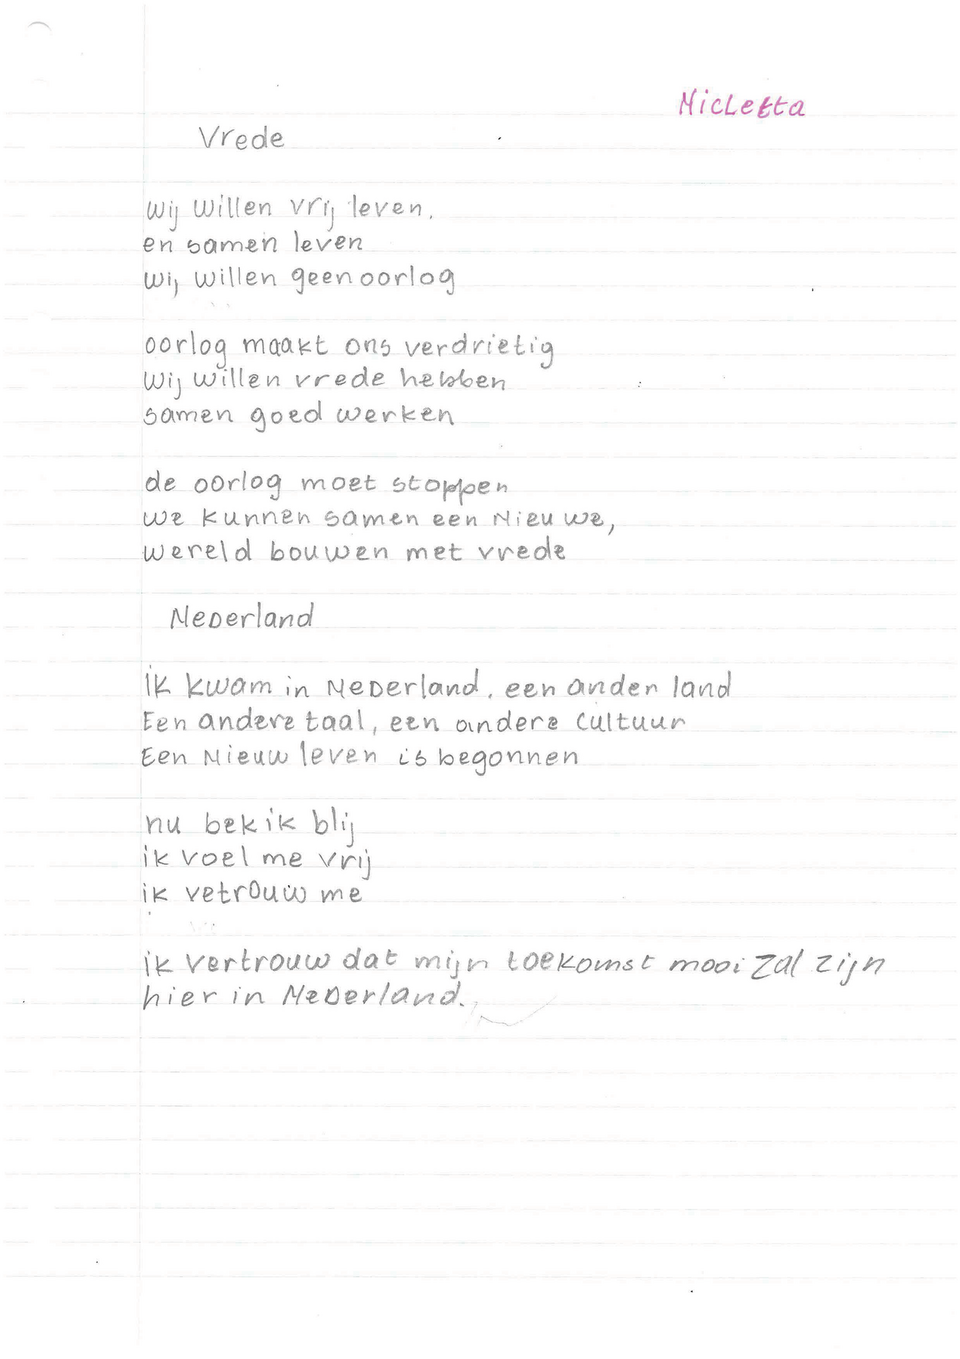 Nicletta
Vrede
wij willen vrij leven,
en samen leven
wij willen geen oorlog
oorlog maakt ons verdrietig
wij willen vrede hebben
samen goed werken
de oorlog moet stoppen
we kunnen samen een Nieuwe,
wereld bouwen met vrede
NeDerland
ik kwam in NeDerland, een ander land
Een andere taal, een andere Cultuur
Een Nieuw leven is begonnen
nu bek ik blij
ik voel me vrij
ik vetrouw me
ik vertrouw dat mijn toekomst mooi zal zijn
hier in NeDerland.